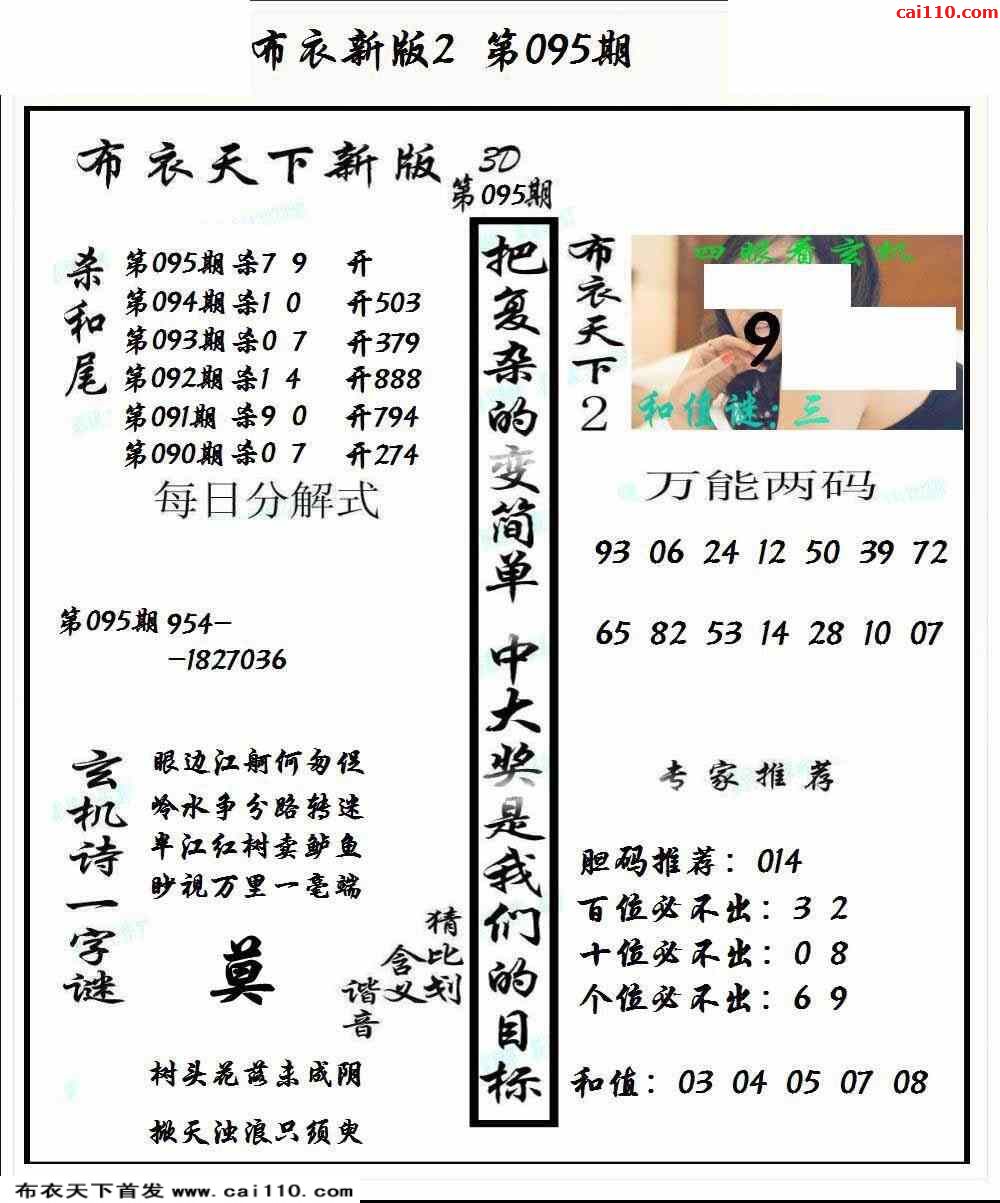 cai110.com
布衣新版2 第095期
布衣天下新版 3D
第095期
杀和尾
第095期 杀7 9 开
第094期 杀1 0 开503
第093期 杀0 7 开379
第092期 杀1 4 开888
第091期 杀9 0 开794
第090期 杀0 7 开274
每日分解式
第095期 954-
-1827036
玄机诗一字谜
眼边江舸何匆促
岭水争分路转迷
半江红树卖鲈鱼
眇视万里一毫端
莫
猜比划
含义
谐音
树头花落未成阴
掀天浊浪只须臾
把复杂的变简单 中大奖是我们的目标
布衣天下2
四眼看玄机
9
和值谜:三
万能两码
93 06 24 12 50 39 72
65 82 53 14 28 10 07
专家推荐
胆码推荐：014
百位必不出：3 2
十位必不出：0 8
个位必不出：6 9
和值：03 04 05 07 08
布衣天下首发 www.cai110.com